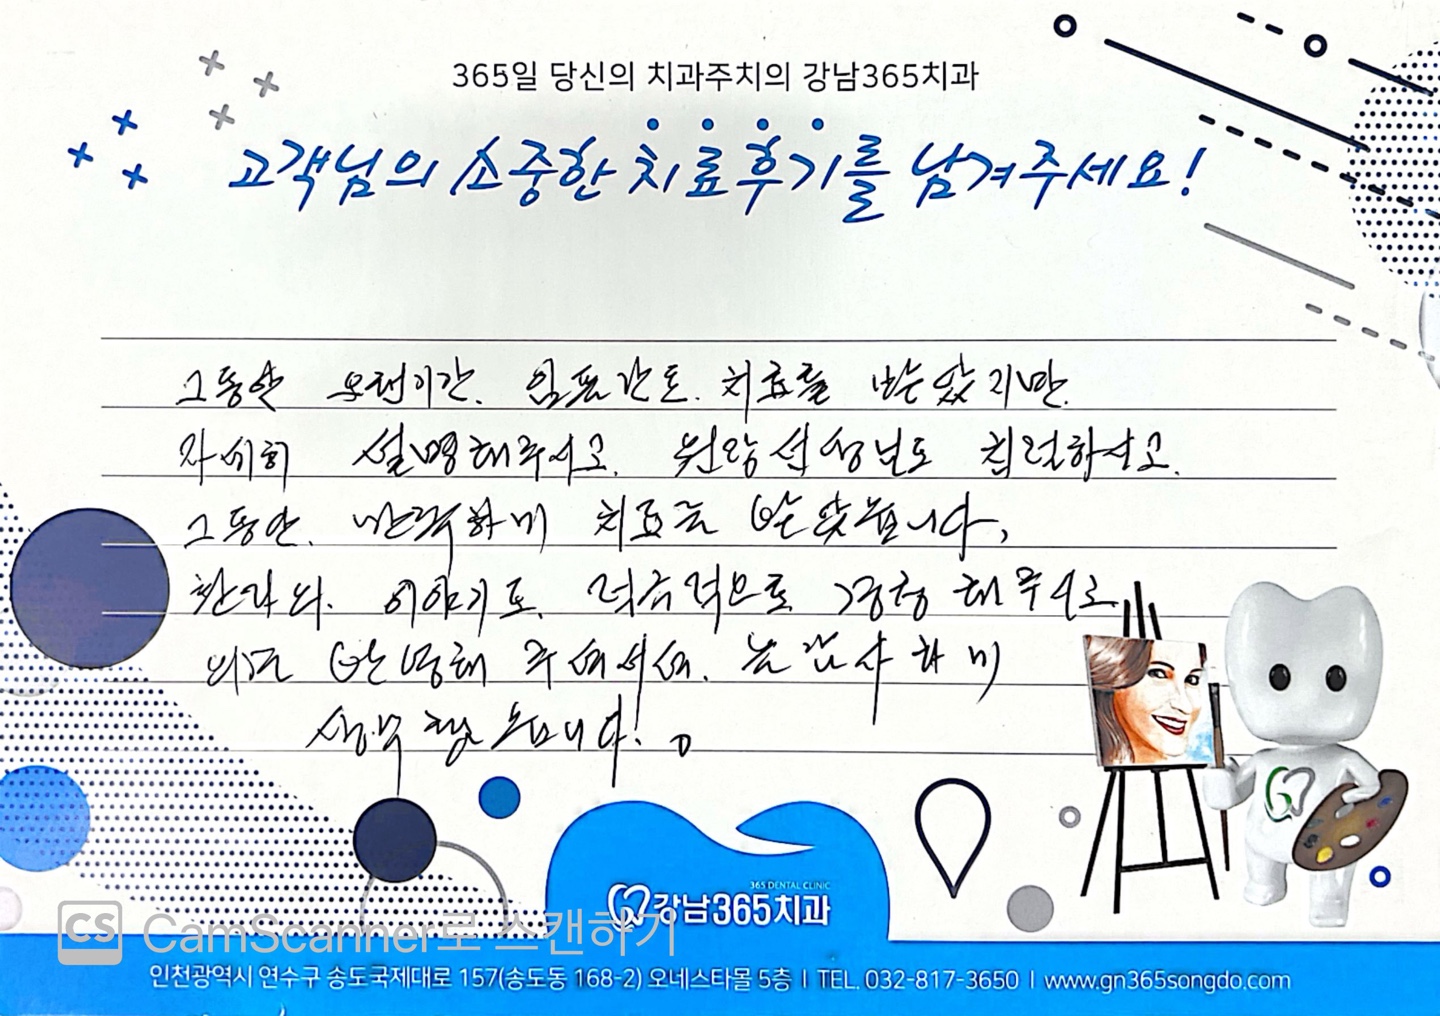 365일 당신의 치과주치의 강남365치과
고객님의 소중한 치료후기를 남겨주세요!
그동안 오랜기간. 임플란트. 치료를 받았지만.
자세히 설명해주시고. 원장선생님도 친절하시고.
그동안. 만족하며 치료를 받았습니다.
환자의. 이야기도. 적극적으로 경청해주시고.
의견 반영해 주셔서. 늘 감사하며
365 DENTAL CLINIC
강남365치과
CS CamScanner로 스캔하기
인천광역시 연수구 송도국제대로 157(송도동 168-2) 오네스타몰 5층 I TEL. 032-817-3650 I www.gn365songdo.com